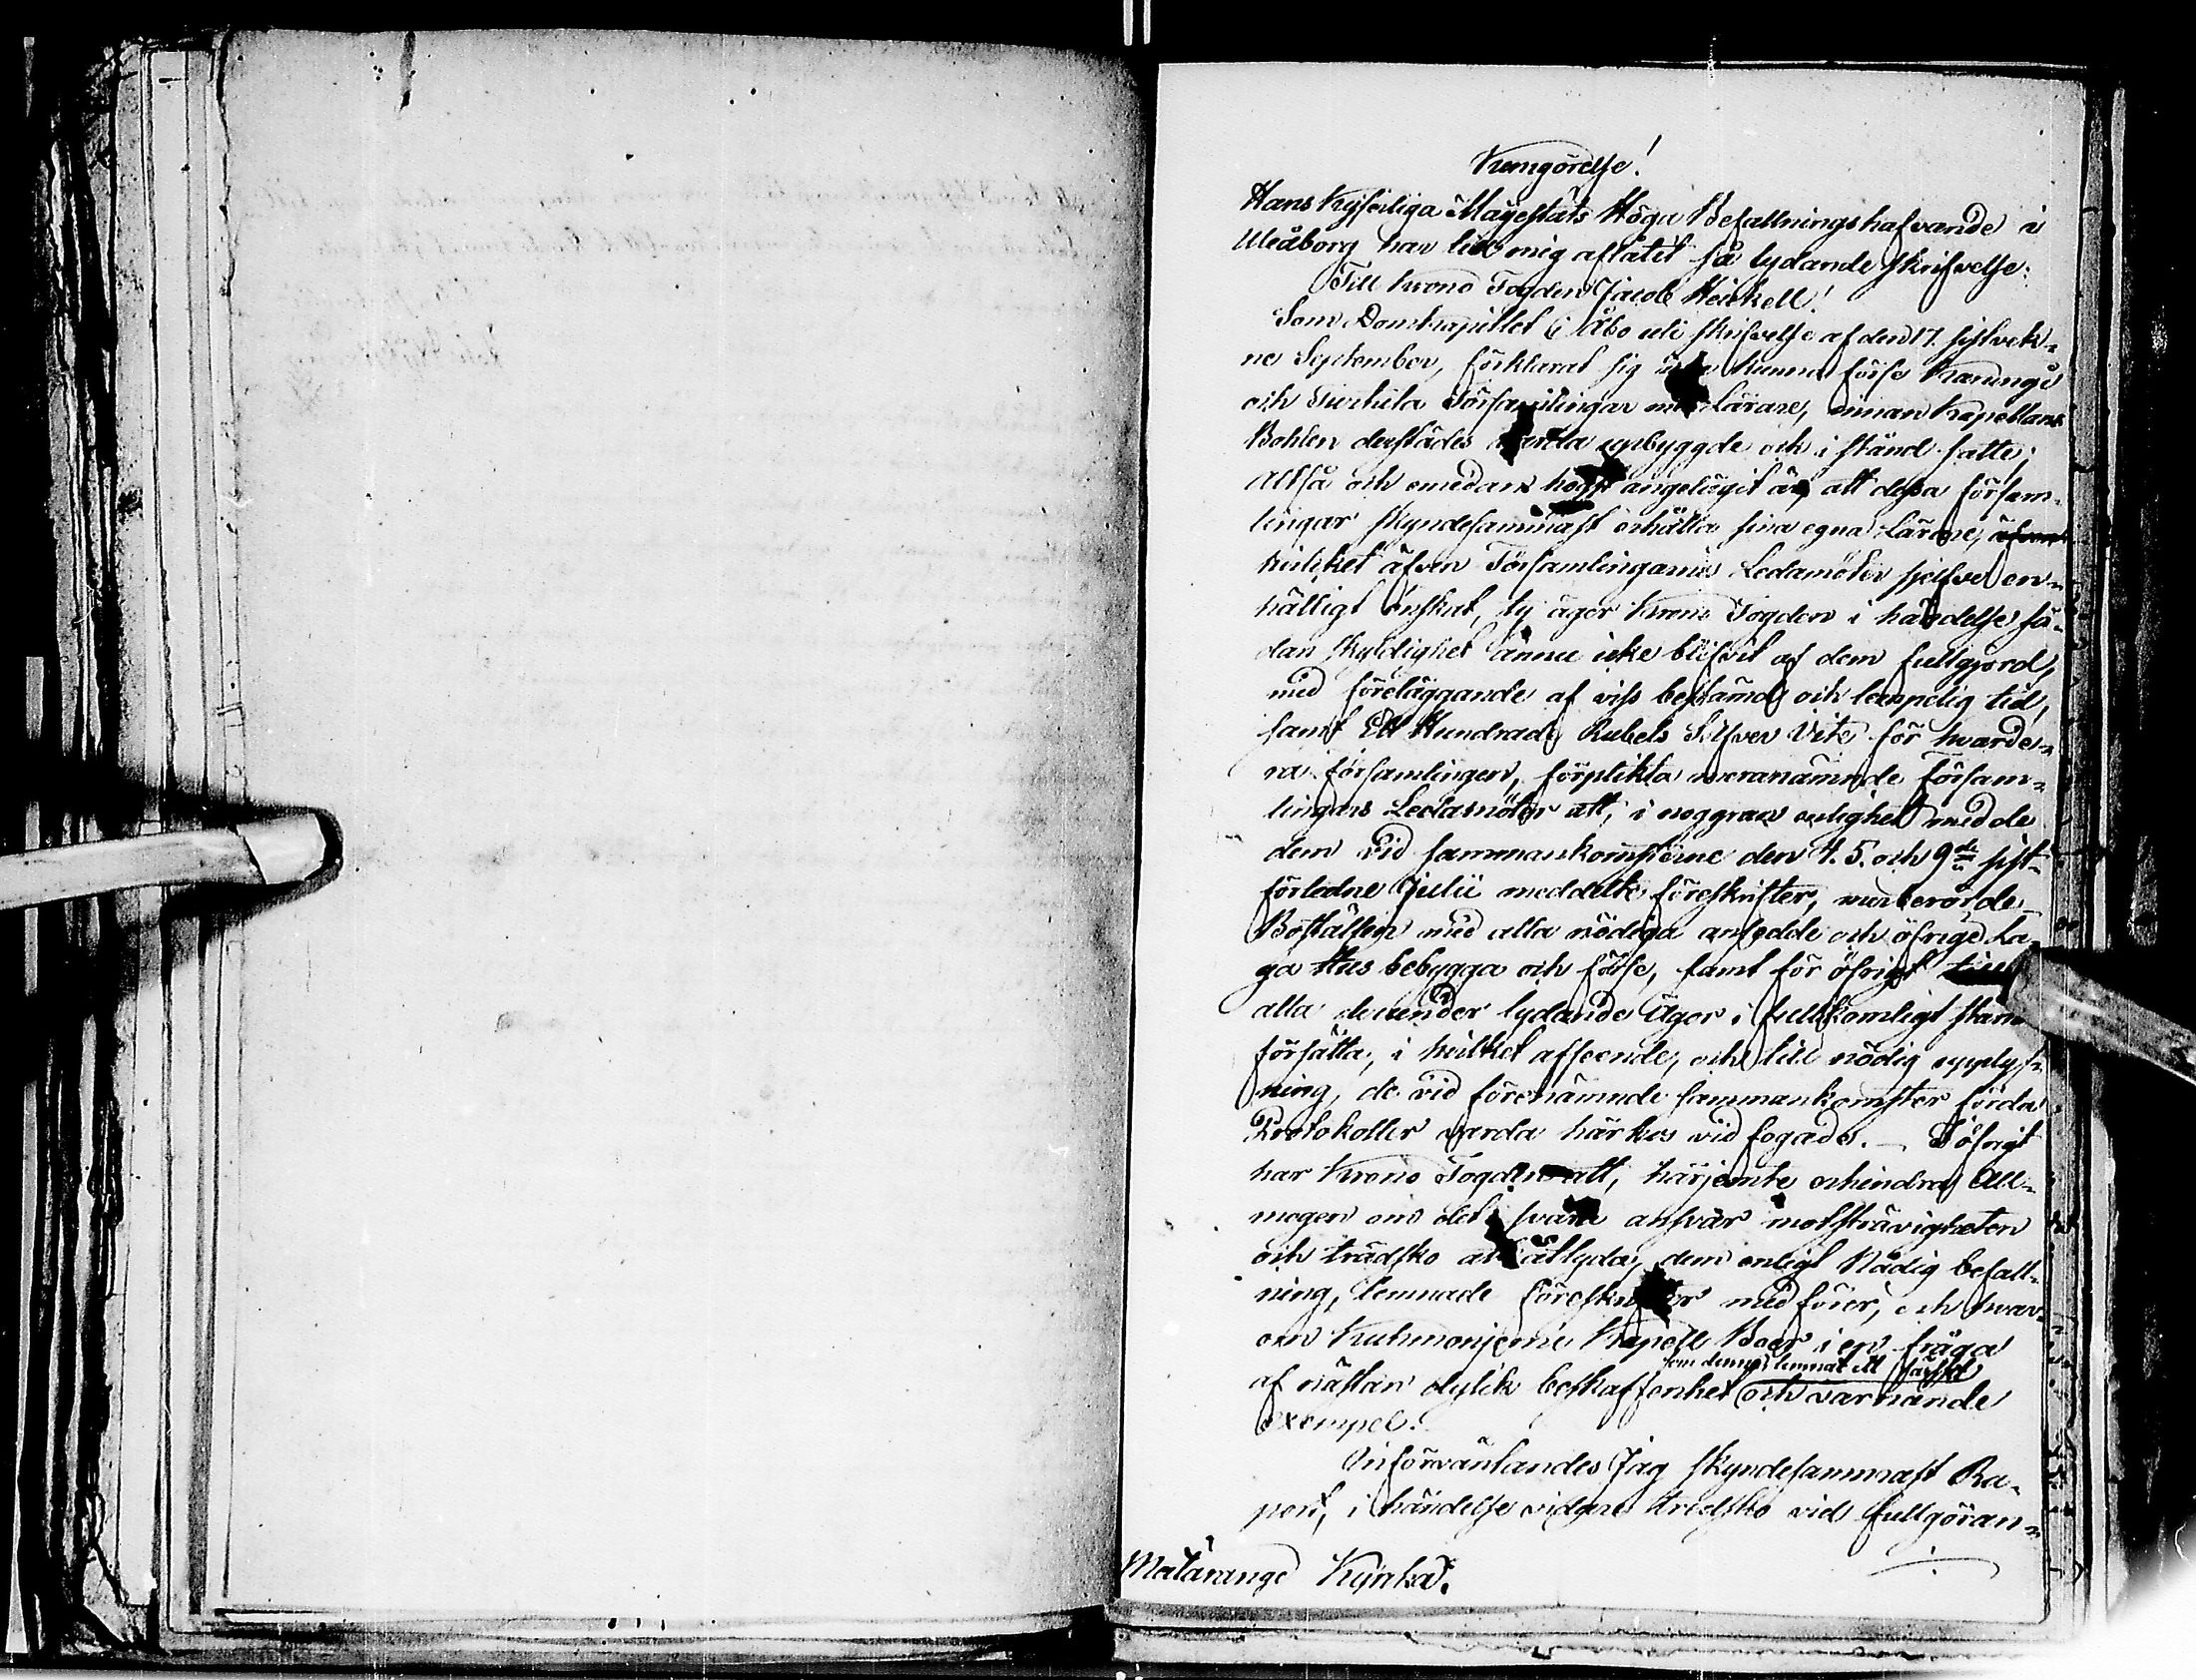 Kungörelse!
Hans Kejserliga Majestäts Höga Befallningshafvande i
Uleåborg har till mig aflåtit så lydande skrifvelse:
Till Krono Fogden Jacob Heickell!
Som Domkapitlet i Åbo uti skrifvelse af den 17. sistvek-
ne September, förklarat sig icke kunna förse Karungi
och Turtula Församlingar med Lärare, innan Kapellans
Bohlen derstädes varda upbyggde och i stånd satte;
Altså och emedan högst angelägit är, att dessa församl-
lingar skyndesammast erhålla sina egna Lärare, äfven
hvilket äfven Församlingarnes Ledamöter sjelfve en-
hälligt önskat, ty äger Krono Fogden i händelse så-
dan skyldighet ännu icke blifvit af dem fullgjord,
med föreläggande af viss bestämd och lempelig tid,
samt Ett Hundrade Rubels Silfver Vite för hvarde-
ra församlingen, förplikta meranämnde församl-
lingars Ledamöter att, i noggran enlighet med de
dem vid sammankomsterne den 4. 5. och 9de sist-
förledne Julii meddelte föreskrifter, nuberörde
Boställen med alla nödiga ansedde och öfrige La-
ga Hus bebygga och förse, samt för öfrigt till
alla derunder lydande Ägor i fullkomligt stånd
försätta, i hvilket afseende, och till nödig upplys-
ning, de vid förenämnde sammankomster förda
Protokoller varda härhos vid fogade. – I öfrigt
har Krono Fogden att, härjemte erhindra All-
mogen om det svåra ansvar motsträvigheten
och trädsko att åtlyda, dem enligt Nådig befall-
ning, lemnade föreskrifter med förer, och hvar-
om Kuhmoniemi Kapell Boer i en fråga
som demus lemnat ett färskt
af nästan dylik beskaffenhet och varnande
exempel.
Införväntandes Jag skyndesammast Ra-
port, i händelse vidare tredsko vid fullgöran-
Matarange Kyrka.